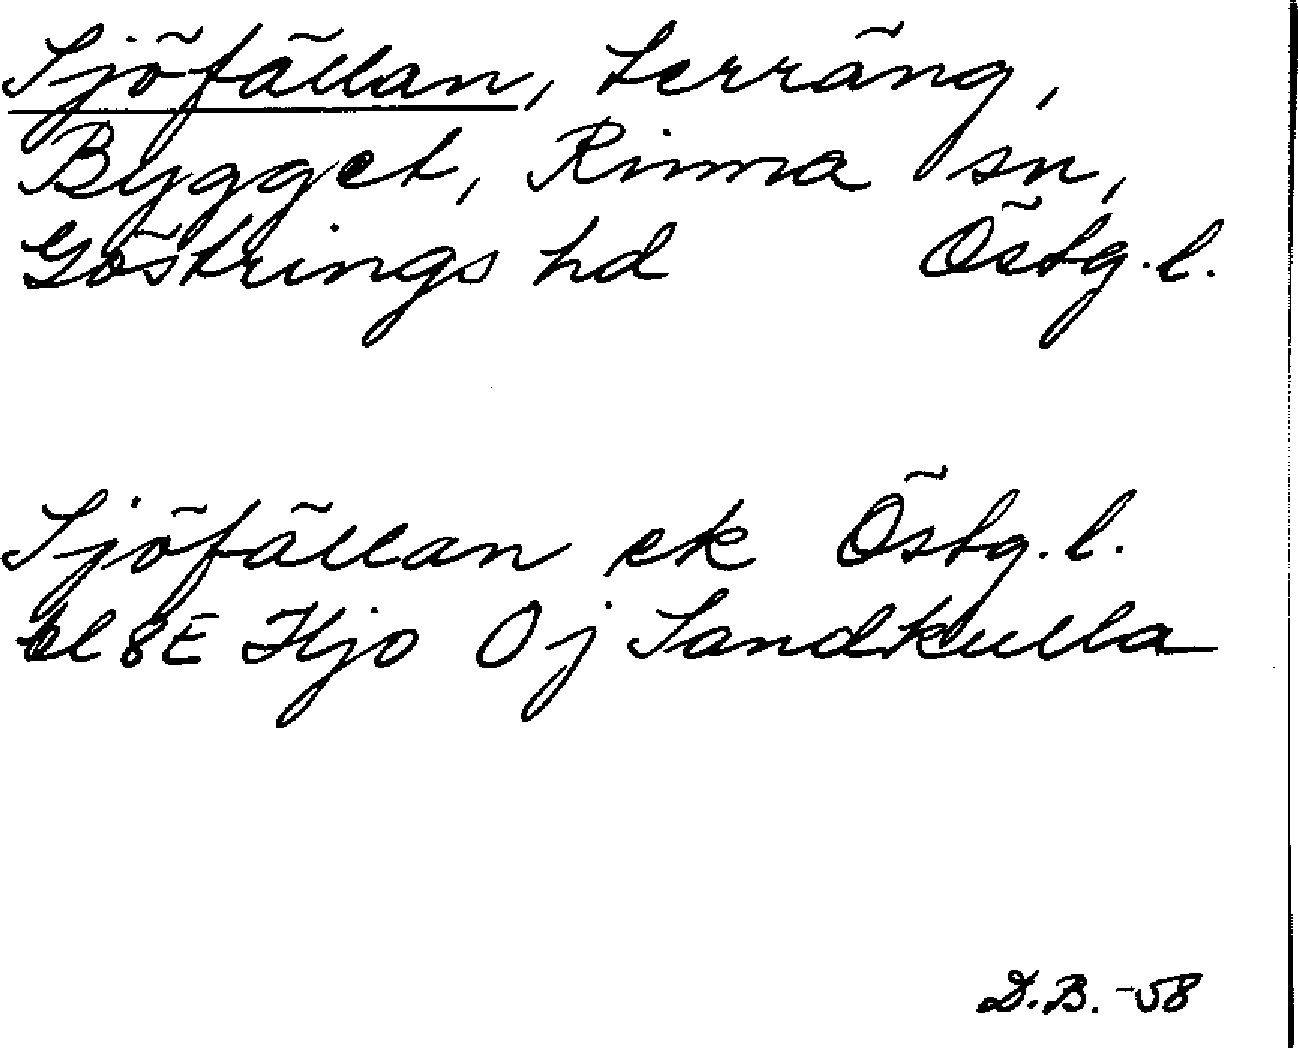 Sjöfällan, terräng,
Bygget, Rinna sn,
Göstrings hd Östg.l.
Sjöfällan ek Östg.l.
bl 8E Hjo Oj Sandkulla
D.B. -58